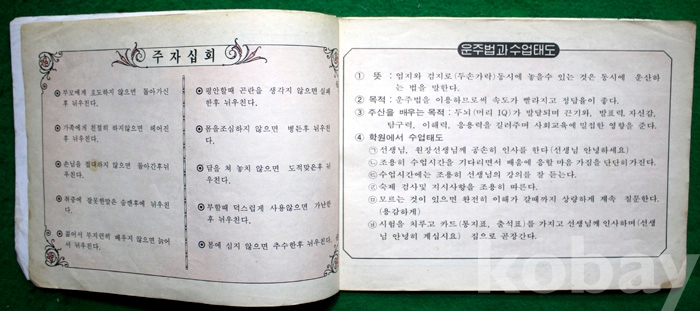 주자십회
부모에게 효도하지 않으면 돌아가신
후 뉘우친다.
가족에게 친절히 하지않으면 헤어진
후 뉘우친다.
손님을 접대하지 않으면 돌아간후뉘
우친다.
취중에 잘못한말은 술깬후에 뉘우친
다.
젊어서 부지런히 배우지 않으면 늙어
서 뉘우친다.
평안할때 곤란을 생각지 않으면 실패
한후 뉘우친다.
몸을조심하지 않으면 병든후 뉘우친
다.
담을 쳐 놓지 않으면 도적맞은후뉘
우친다.
부할때 덕스럽게 사용않으면 가난한
후 뉘우친다.
봄에 심지 않으면 추수한후 뉘우친다.
운주법과수업태도
① 뜻 : 엄지와 검지로(두손가락)동시에 놓을수 있는 것은 동시에 운산하
는 법을 말한다.
② 목적 : 운주법을 이용하므로써 속도가 빨라지고 정답율이 좋다.
③ 주산을 배우는 목적 : 두뇌(머리 IQ)가 발달되며 끈기와, 발표력, 자신감,
탐구력, 이해력, 응용력을 길러주며 사회교육에 밀접한 영향을 준다.
④ 학원에서 수업태도
㉠ 선생님, 원장선생님께 공손히 인사를 한다(선생님 안녕하세요)
㉡ 조용히 수업시간을 기다리면서 배움에 응할 마음 가짐을 단단히가진다.
㉢ 수업시간에는 조용히 선생님의 강의를 잘 듣는다.
㉣ 숙제 검사및 지시사항을 조용히 따른다.
㉤ 모르는 것이 있으면 완전히 이해가 갈때까지 상냥하게 계속 질문한다.
(용감하게)
㉥ 시험을 치루고 카드(통지표, 출석표)를 가지고 선생님께인사하며(선생
님 안녕히 계십시요) 집으로 곧장간다.
kobay